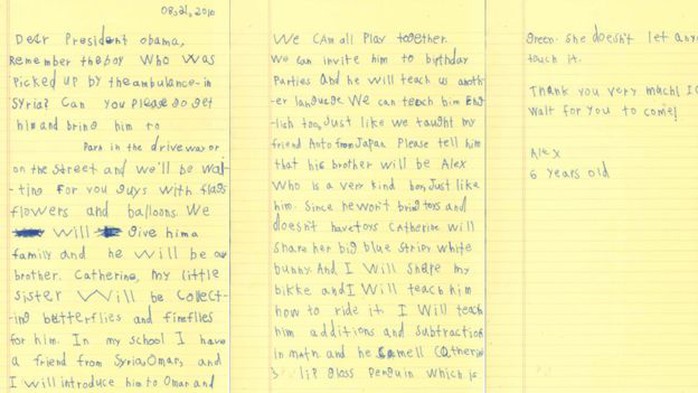 08,21,2016
Dear President obama,
Remember the boy who was
picked up by the ambulance in
Syria? Can you please go get
him and bring him to
Park in the driveway or
on the street and we'll be wai-
-ting for you guys with flags
flowers and balloons. We
will give him a
family and he will be our
brother. Catherine, my little
sister will be collect-
-ing butterflies and fireflies
for him. In my school I have
a friend from Syria, Omar, and
I will introduce him to Omar and
We can all play together.
We can invite him to birthday
parties and he will teach us anoth-
-er language. We can teach him eng-
-lish too, Just like we taught my
friend Aoto from Japan. Please tell him
that his brother will be Alex
who is a very kind boy, Just like
him. Since he won't bring toys and
doesn't have toys Catherine will
share her big blue stripy white
bunny. And I will share my
bikke and I will teach him
how to ride it. I will teach
him additions and subtraction
in math and he smell Catherine
's li glass penguin which is
green. She doesn't let any
touch it.
Thank you very much! I
wait for you to come!
Alex
6 years old